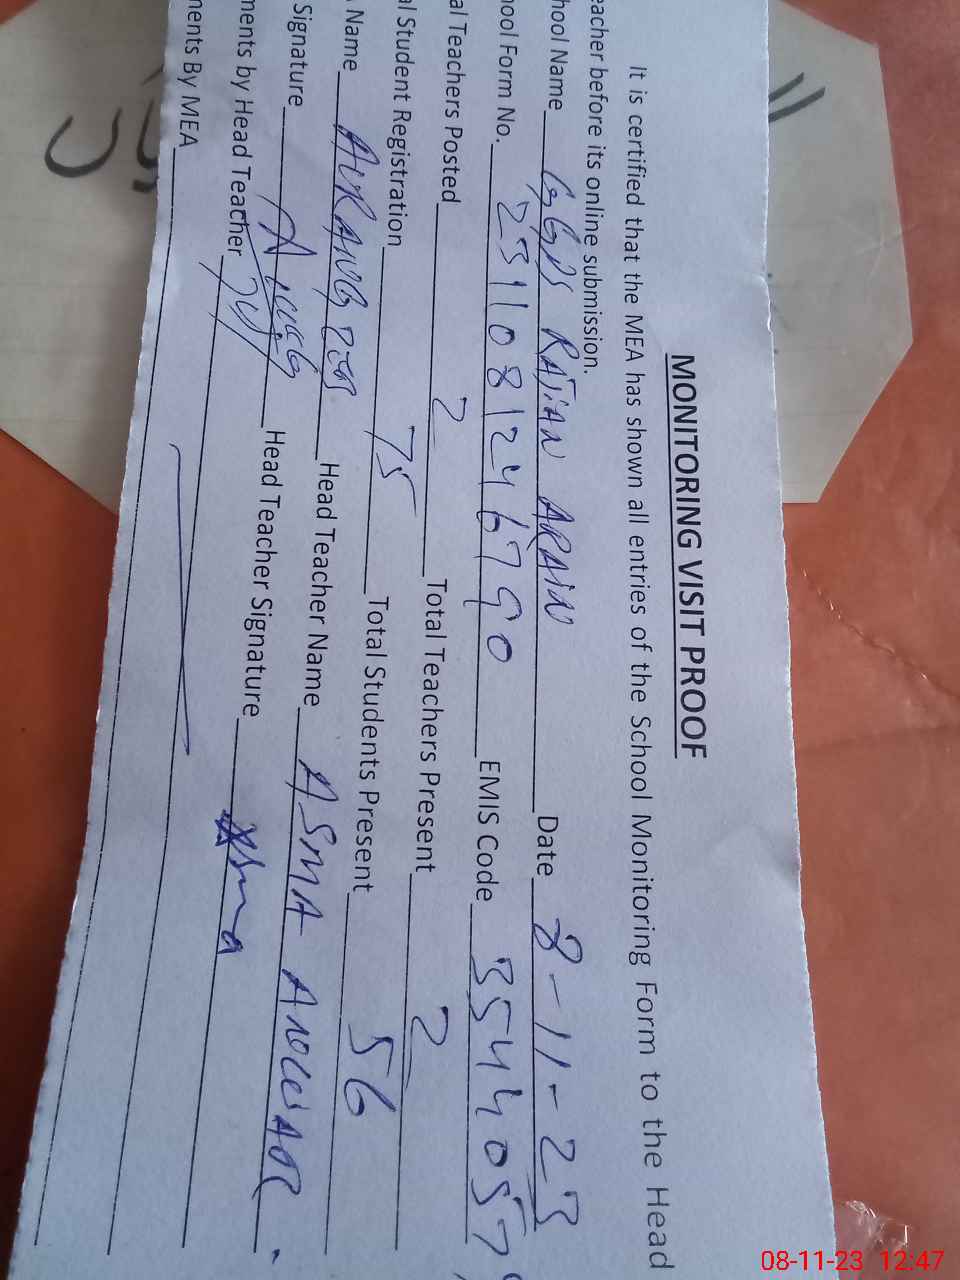 MONITORING VISIT PROOF
It is certified that the MEA has shown all entries of the School Monitoring Form to the Head
eacher before its online submission.
hool Name GGPS RAJIAN ARAIN Date 8-11-23
hool Form No. 2311081246790 EMIS Code 35440057
al Teachers Posted 2 Total Teachers Present 2
al Student Registration 75 Total Students Present 56
Name AURANGZEB Head Teacher Name ASMA ANOWAR
Signature Head Teacher Signature Asma
ments by Head Teacher
nents By MEA
08-11-23 12:47